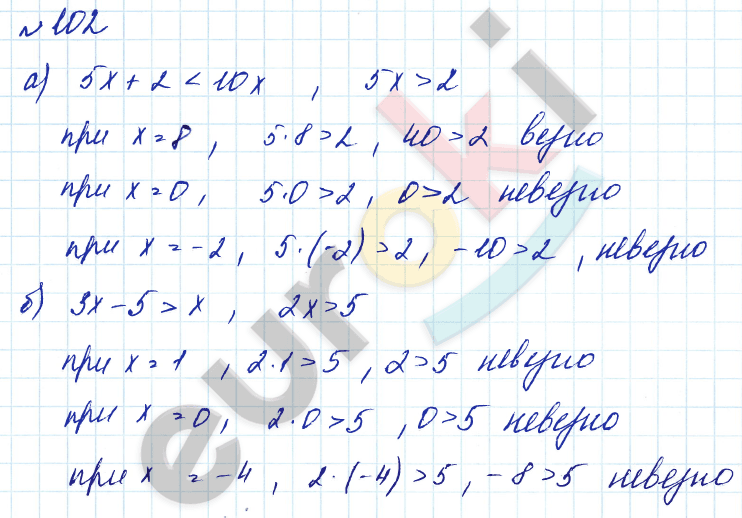 №102
а) 5x + 2 < 10x , 5x > 2
при x = 8 , 5·8 > 2 , 40 > 2 верно
при x = 0 , 5·0 > 2 , 0 > 2 неверно
при x = -2 , 5·(-2) > 2 , -10 > 2 , неверно
б) 3x - 5 > x , 2x > 5
при x = 1 , 2·1 > 5 , 2 > 5 неверно
при x = 0 , 2·0 > 5 , 0 > 5 неверно
при x = -4 , 2·(-4) > 5 , -8 > 5 неверно
euroki